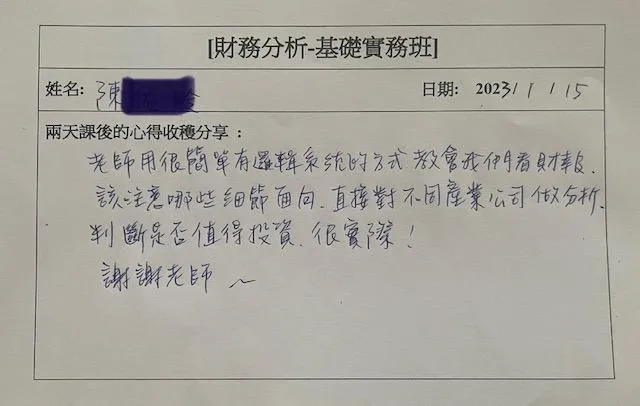 [財務分析-基礎實務班]
姓名: 陳
日期: 2023/1/15
兩天課後的心得收穫分享：
老師用很簡單有邏輯系統的方式教會我們看財報.
該注意哪些細節面向.直接對不同產業公司做分析.
判斷是否值得投資.很實際！
謝謝老師～